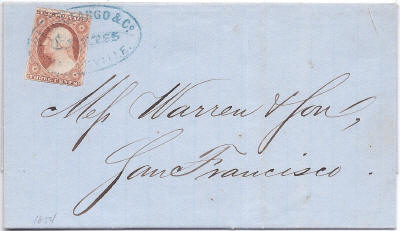 ARGO & Co.
VILLE.
THREE CENTS
Mess Warren & Son,
San Francisco.
1854